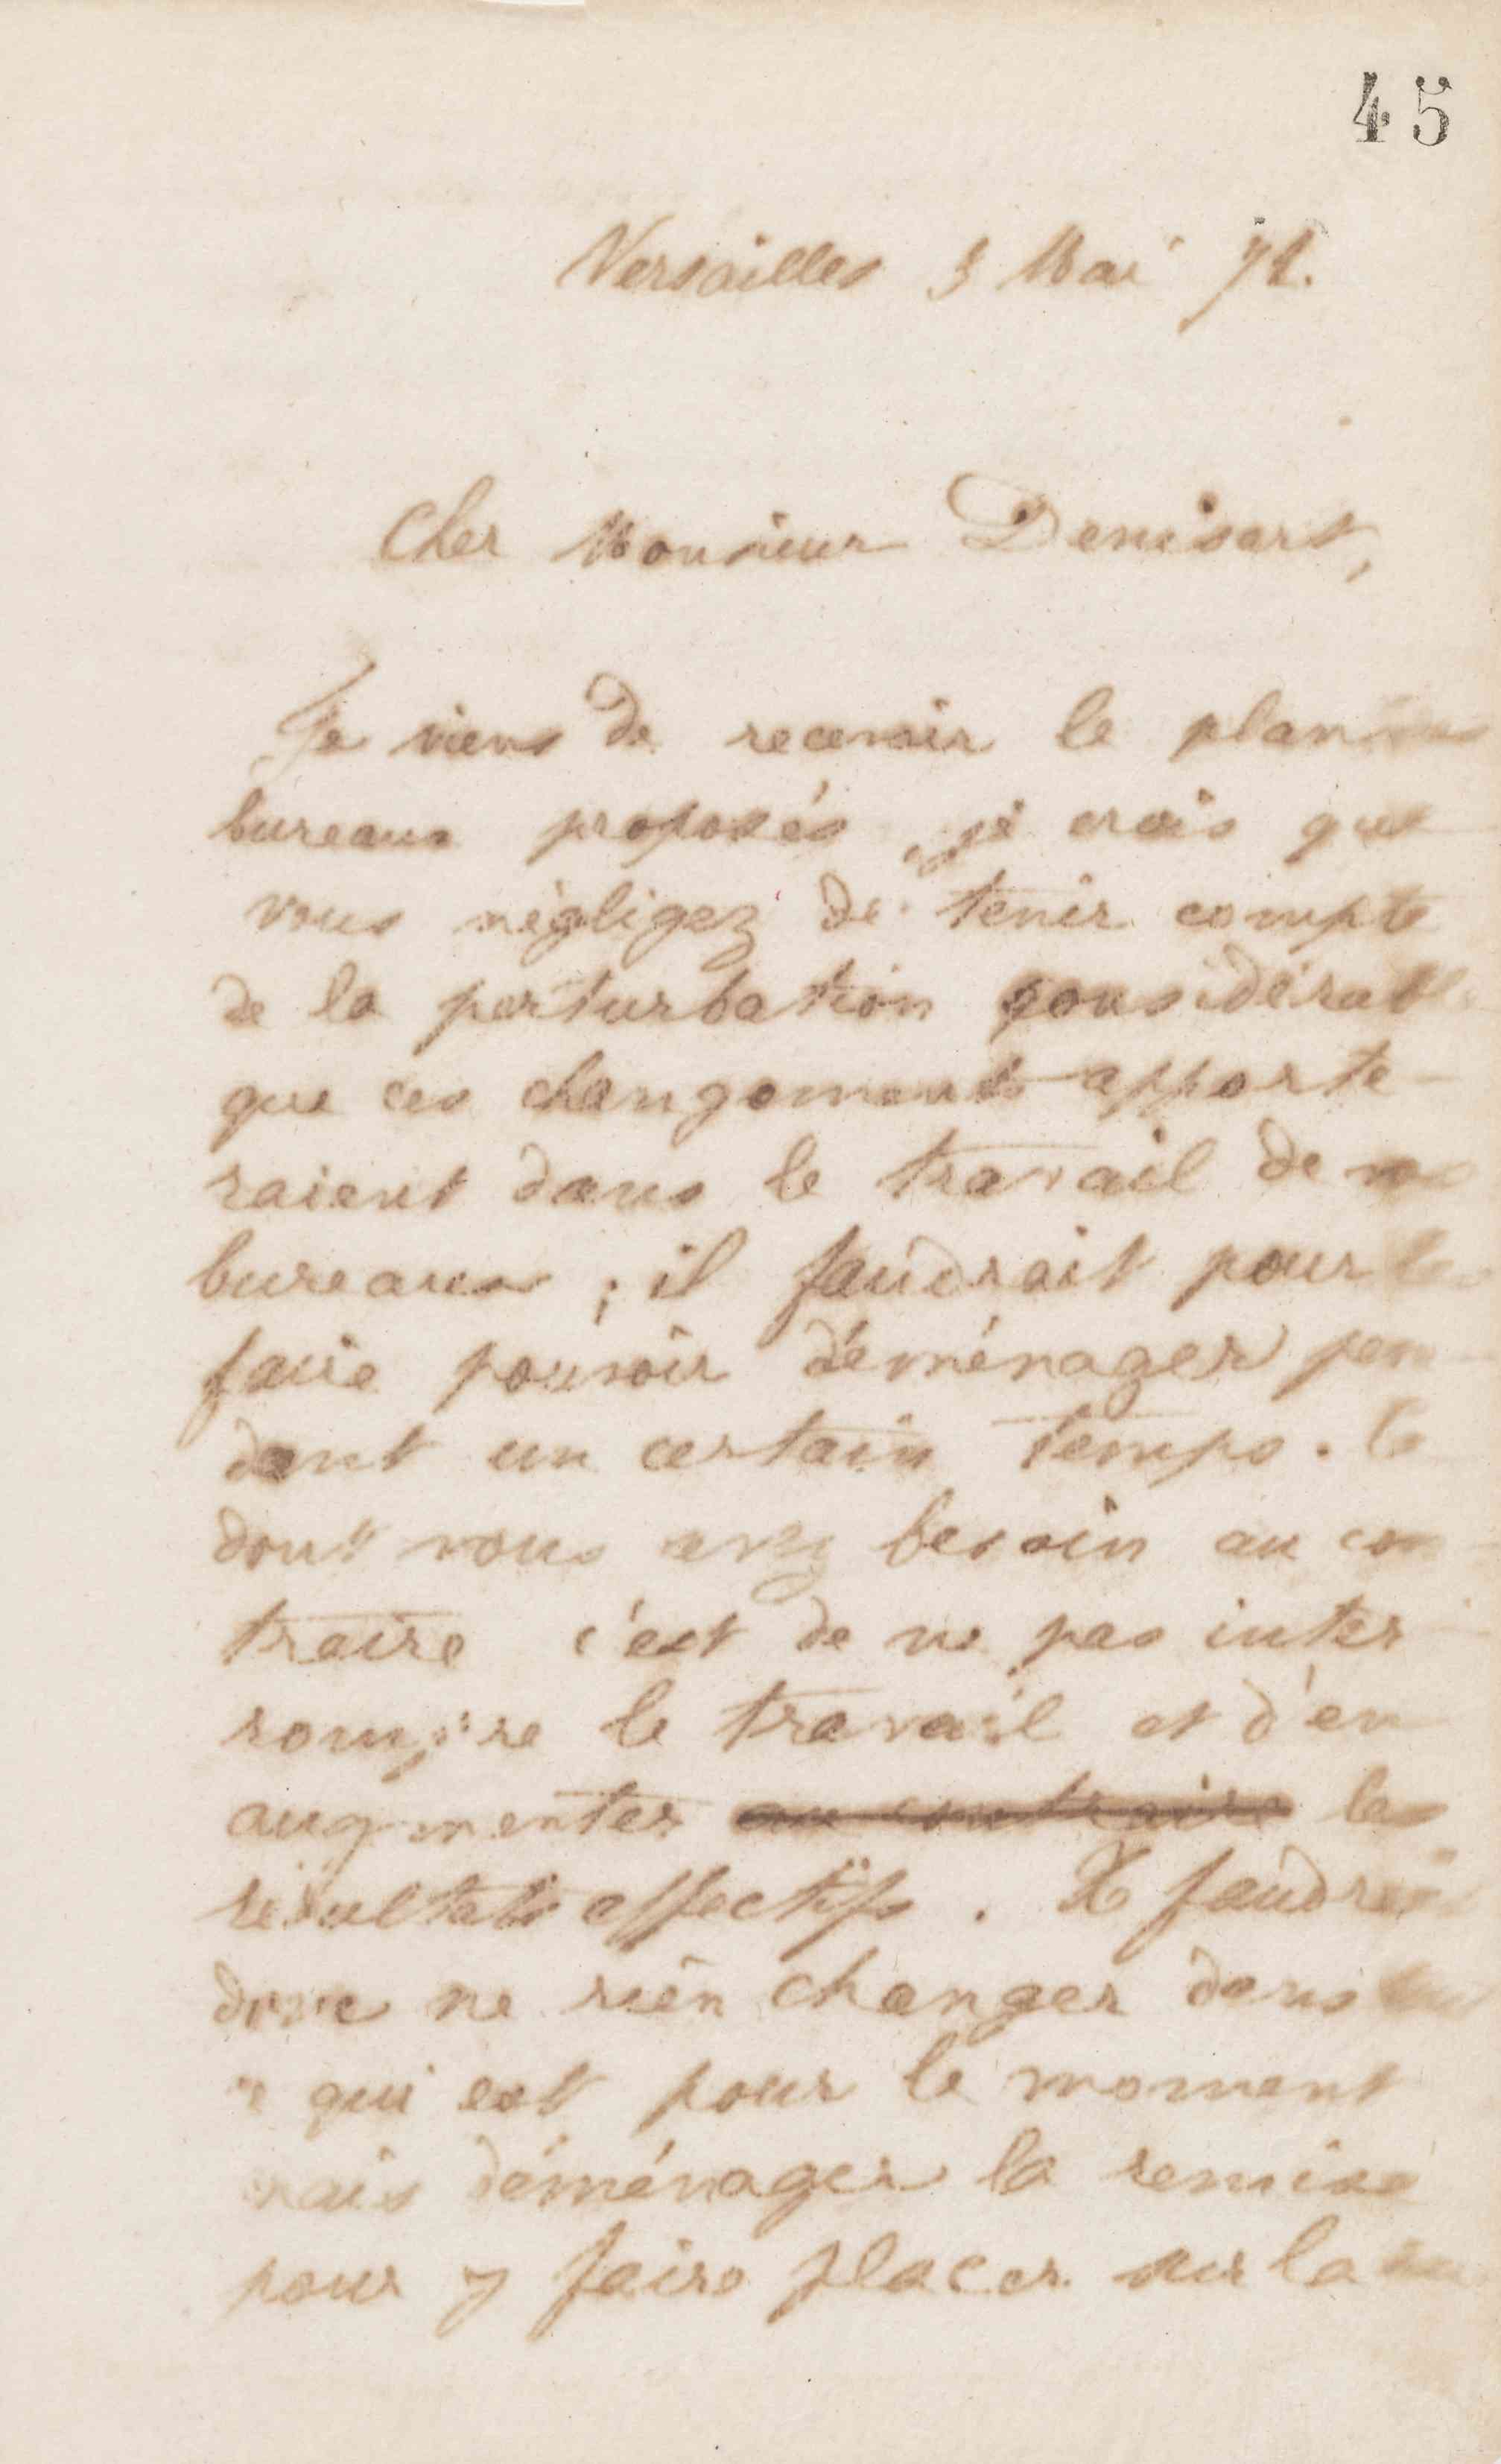 45
Versailles 3 Mai 72.
Cher Monsieur Denisart,
Je viens de recevoir le plan des
bureaux proposés, je crois que
vous négligez de tenir compte
de la perturbation considérable
que ces changements apporte-
raient dans le travail de nos
bureaux ; il faudrait pour le
faire pouvoir déménager pen-
dant un certain temps. Ce
dont vous avez besoin au con-
traire c'est de ne pas inter-
rompre le travail et d'en
augmenter au contraire les
résultats effectifs. Il faudrait
donc ne rien changer dans
ce qui est pour le moment
mais déménager la remise
pour y faire placer sur la